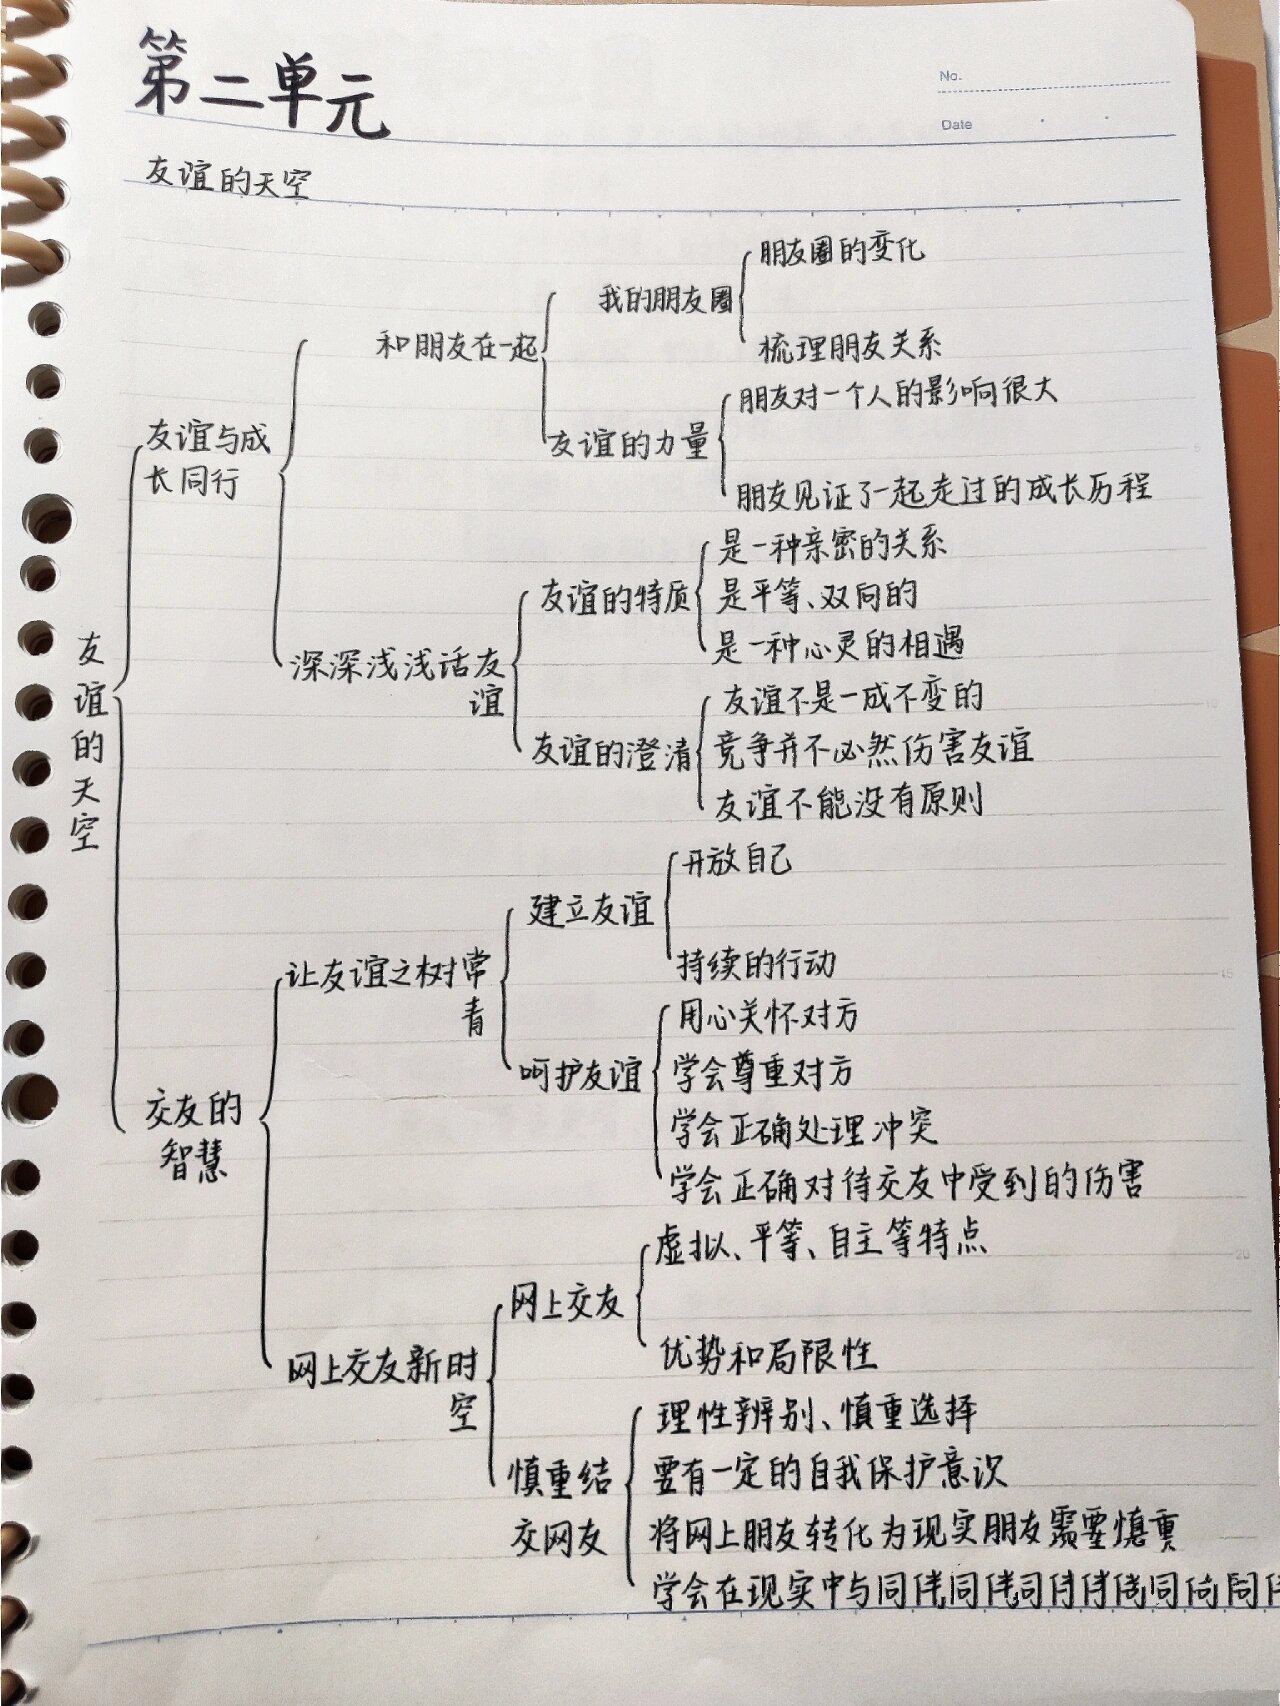 第二单元
No.
Date
友谊的天空
朋友圈的变化
我的朋友圈
和朋友在一起
梳理朋友关系
朋友对一个人的影响很大
友谊的力量
友谊与成
长同行
朋友见证了一起走过的成长历程
是一种亲密的关系
友谊的特质
是平等、双向的
是一种心灵的相遇
深深浅浅话友
谊
友谊的天空
友谊不是一成不变的
友谊的澄清
竞争并不必然伤害友谊
友谊不能没有原则
开放自己
建立友谊
持续的行动
让友谊之树常
青
用心关怀对方
呵护友谊
学会尊重对方
学会正确处理冲突
学会正确对待交友中受到的伤害
交友的
智慧
虚拟、平等、自主等特点
网上交友
优势和局限性
网上交友新时
空
理性辨别、慎重选择
慎重结
交网友
要有一定的自我保护意识
将网上朋友转化为现实朋友需要慎重
学会在现实中与同伴
5
10
15
20